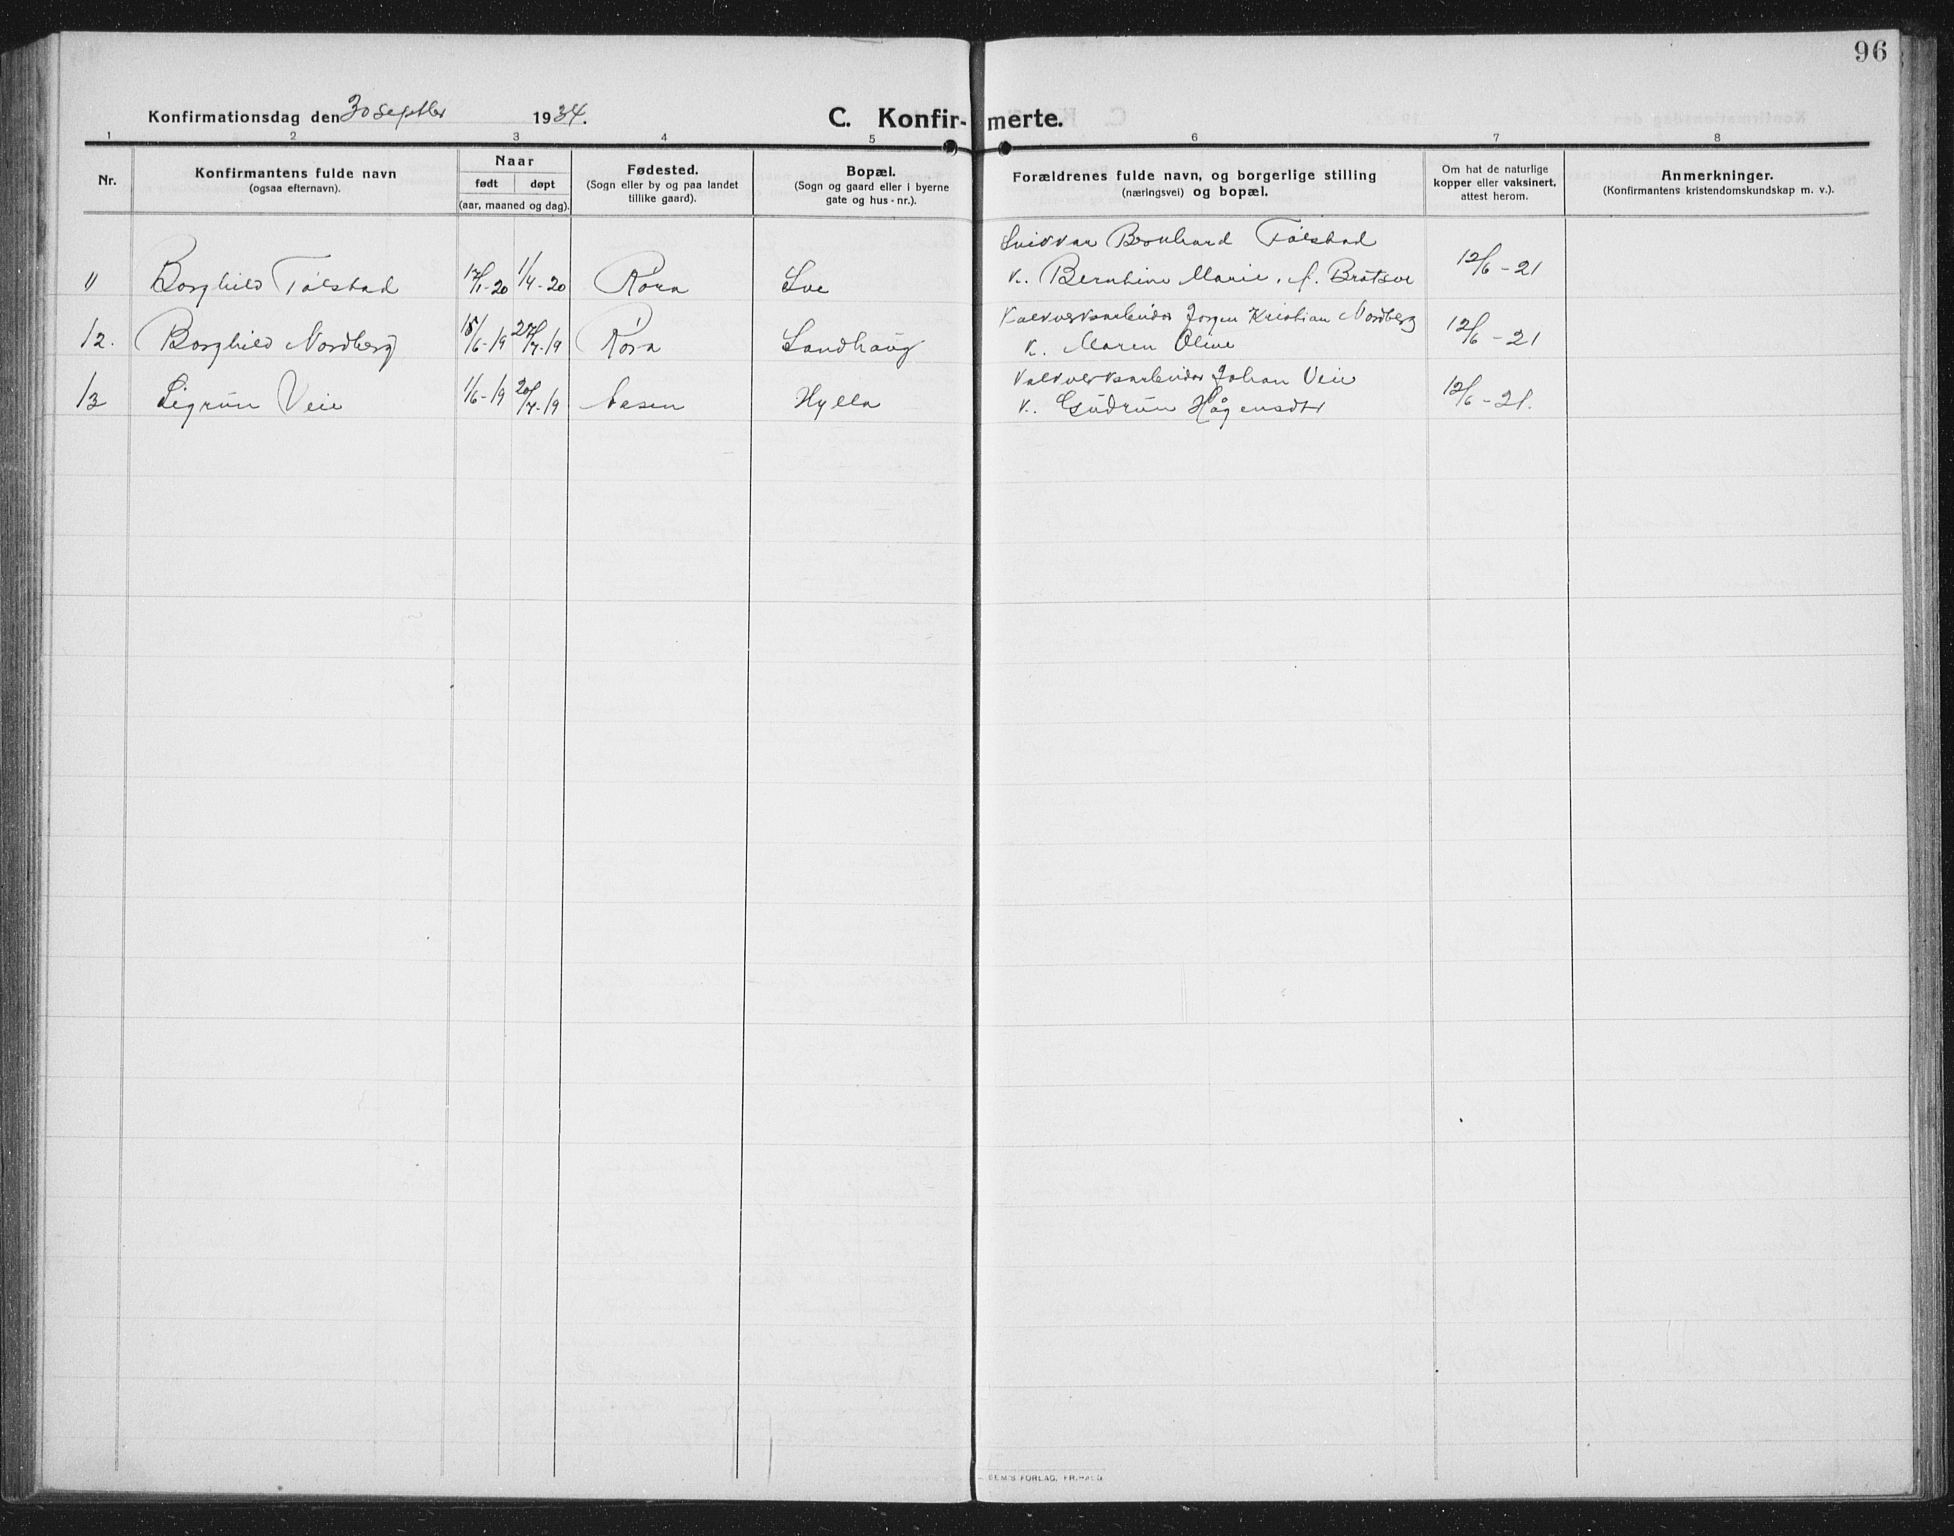 96
Konfirmationsdag den 30 septbr 1934.
C. Konfirmerte.
1 2 3 4 5 6 7 8
Nr.
Konfirmantens fulde navn
(ogsaa efternavn).
Naar
født døpt
(aar, maaned og dag).
Fødested.
(Sogn eller by og paa landet
tillike gaard).
Bopæl.
(Sogn og gaard eller i byerne
gate og hus-nr.).
Forældrenes fulde navn, og borgerlige stilling
(næringsvei) og bopæl.
Om hat de naturlige
kopper eller vaksinert,
attest herom.
Anmerkninger.
(Konfirmantens kristendomskundskap m. v.).
Bernhard Følstad
11 Borghild Følstad 17/1-20 1/4-20 Røra Sve
k. Bernhine Marie, f. Bratsve 12/6-21
Kalkverksarbeider Jørgen Kristian Nordberg
12. Borghild Nordberg 15/6-19 /7-19 Røra Sandhaug
k. Maren Oline 12/6-21
Kalkverksarbeider Johan Veie
13 Sigrun Veie 1/6-19 20/7-19 Aasen Hylla
k. Gudrun Hågensdtr 12/6-21.
SEM'S FORLAG, FR.HALD